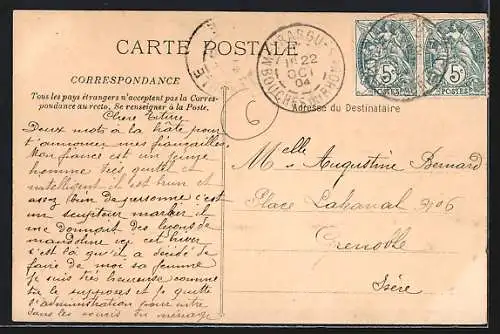 CARTE POSTALE
CORRESPONDANCE
Tous les pays étrangers n'acceptent pas la Corres-
pondance au recto. Se renseigner à la Poste.
Adresse du Destinataire
22
OCT
04
5c
POSTES
5c
POSTES
Chère
Deux mots à la hâte pour
t'annoncer mes fiançailles
Mon fiancé est un jeune
homme très gentil et
intelligent il est brun et
assez bien de personne c'est
un sculpteur il
me donnait des leçons de
mandoline cet hiver
c'est là qu'il a décidé de
faire de moi sa femme
je suis très heureuse comme
tu le supposes et je quitte
l'administration pour entrer
dans les soucis du ménage
Melle Augustine Bernard
Place Lakanal
Grenoble
Isère